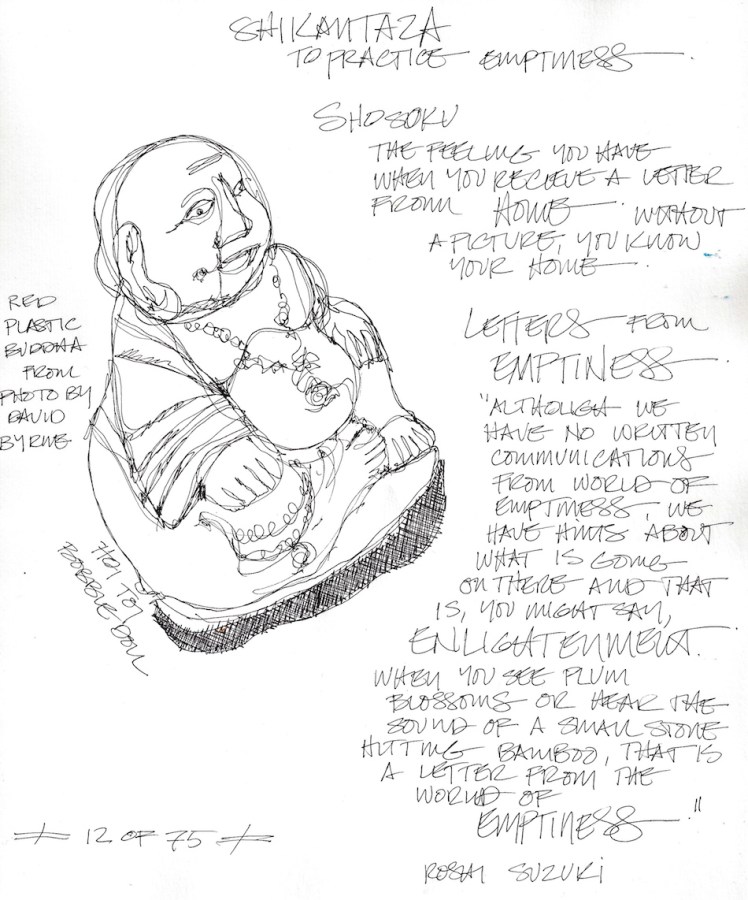 SHIKANTAZA
TO PRACTICE EMPTINESS.
SHOSOKU
THE FEELING YOU HAVE
WHEN YOU RECIEVE A LETTER
FROM HOME. WITHOUT
A PICTURE, YOU KNOW
YOUR HOME.
RED
PLASTIC
BUDDHA
FROM
PHOTO BY
DAVID
BYRNE
LETTERS FROM
EMPTINESS.
"ALTHOUGH WE
HAVE NO WRITTEN
COMMUNICATIONS
FROM WORLD OF
EMPTINESS, WE
HAVE HINTS ABOUT
WHAT IS GOING
ON THERE AND THAT
IS, YOU MIGHT SAY,
ENLIGHTENMENT.
WHEN YOU SEE PLUM
BLOSSOMS OR HEAR THE
SOUND OF A SMALL STONE
HITTING BAMBOO, THAT IS
A LETTER FROM THE
WORLD OF
EMPTINESS."
ROSHI SUZUKI
TOY
BOBBLE DOLL
12 OF 75